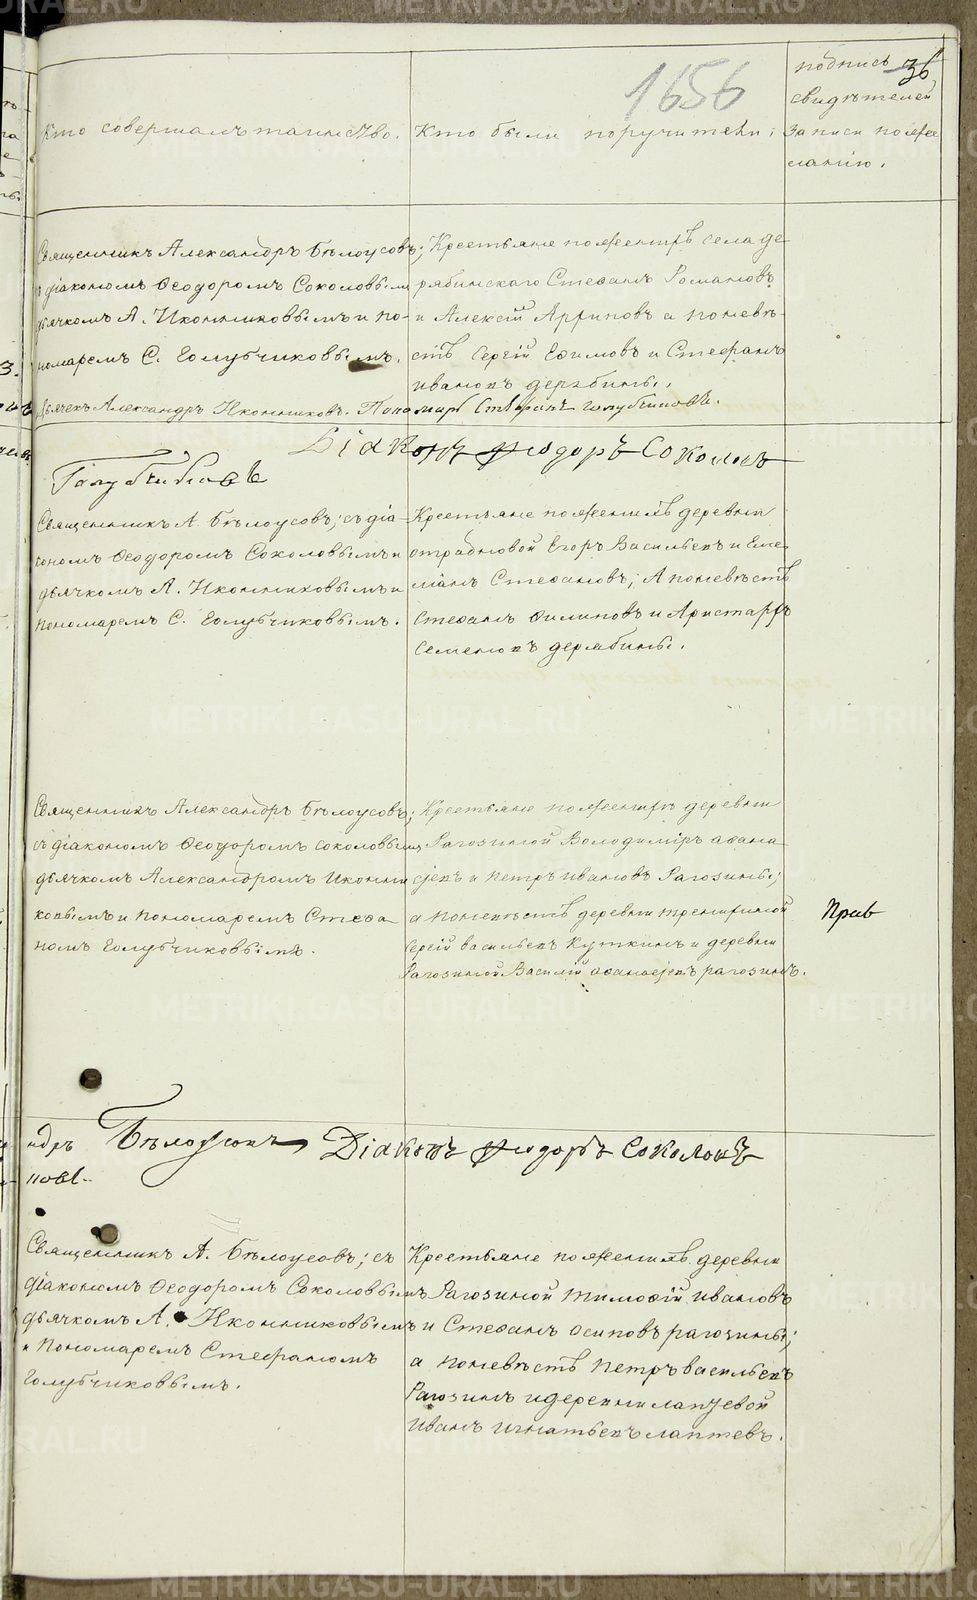 1656
36
Кто совершалъ таинство.
Кто были поручители:
подпись
свидѣтелей
записи по же
ланію.
Священникъ Александръ Бѣлоусовъ;
діакономъ Ѳеодоромъ Соколовымъ
дьячкомъ А. Иконниковымъ и по-
номаремъ С. Голубчиковымъ.
Дьячекъ Александръ Иконниковъ. Пономарь Стефанъ Голубчиковъ.
Крестьяне по женихѣ села де
рябинскаго Стефанъ Романовъ
и Алексій Архиповъ а по невѣ-
стѣ Сергій Ефимовъ и Стефанъ
Ивановъ дерябины.
Діаконъ Ѳеодоръ Соколовъ
Голубчиковъ
Священникъ А. Бѣлоусовъ; съ діа-
кономъ Ѳеодоромъ Соколовымъ и
дьячкомъ А. Иконниковымъ и
пономаремъ С. Голубчиковымъ.
Крестьяне по женихѣ деревни
отрадновой Егоръ Васильевъ и Еме
лианъ Стефановъ; А по невѣстѣ
Стефанъ Филиповъ и Аристархъ
Семеновъ дерябины.
Священникъ Александръ Бѣлоусовъ;
съ діакономъ Ѳеодоромъ Соколовымъ
дьячкомъ Александромъ Иконни
ковымъ и пономаремъ Стефа
номъ Голубчиковымъ.
Крестьяне по женихѣ деревни
Рагозиной Володимиръ Афана
сьевъ и Петръ Ивановъ Рагозины;
а по невѣстѣ деревни тренихиной
Сергій Васильевъ Куткинъ и деревни
Рагозиной Василій Афанасьевъ рагозинъ.
Прав
ндръ Бѣлоусовъ Діаконъ Ѳеодоръ Соколовъ
новъ
Священникъ А. Бѣлоусовъ; съ
діакономъ Ѳеодоромъ Соколовымъ
дьячкомъ А. Иконниковымъ
и Пономаремъ Стефаномъ
Голубчиковымъ.
Крестьяне по женихѣ деревни
Рагозиной Тимофій Ивановъ
и Стефанъ Осиповъ рагозины;
а по невѣстѣ Петръ Васильевъ
Рагозинъ и деревни лаптевой
Иванъ Игнатьевъ лаптевъ.
METRIKI.GASO-URAL.RU